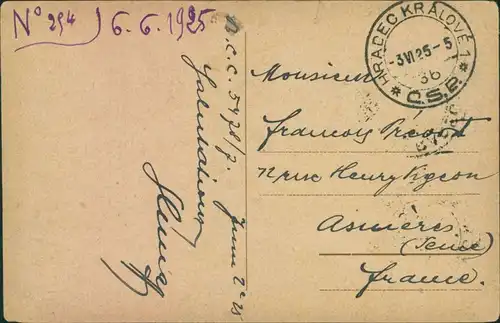 Nº 294 6.6.1925
HRADEC KRÁLOVÉ 1
-3.VI.25-5
3b
* Č.S.R. *
C.C. 5478/7. June 2 25
Salutations
Monsieur
Francois Prévost
12 rue Henry Vigeon
Asnières
(Seine)
France.